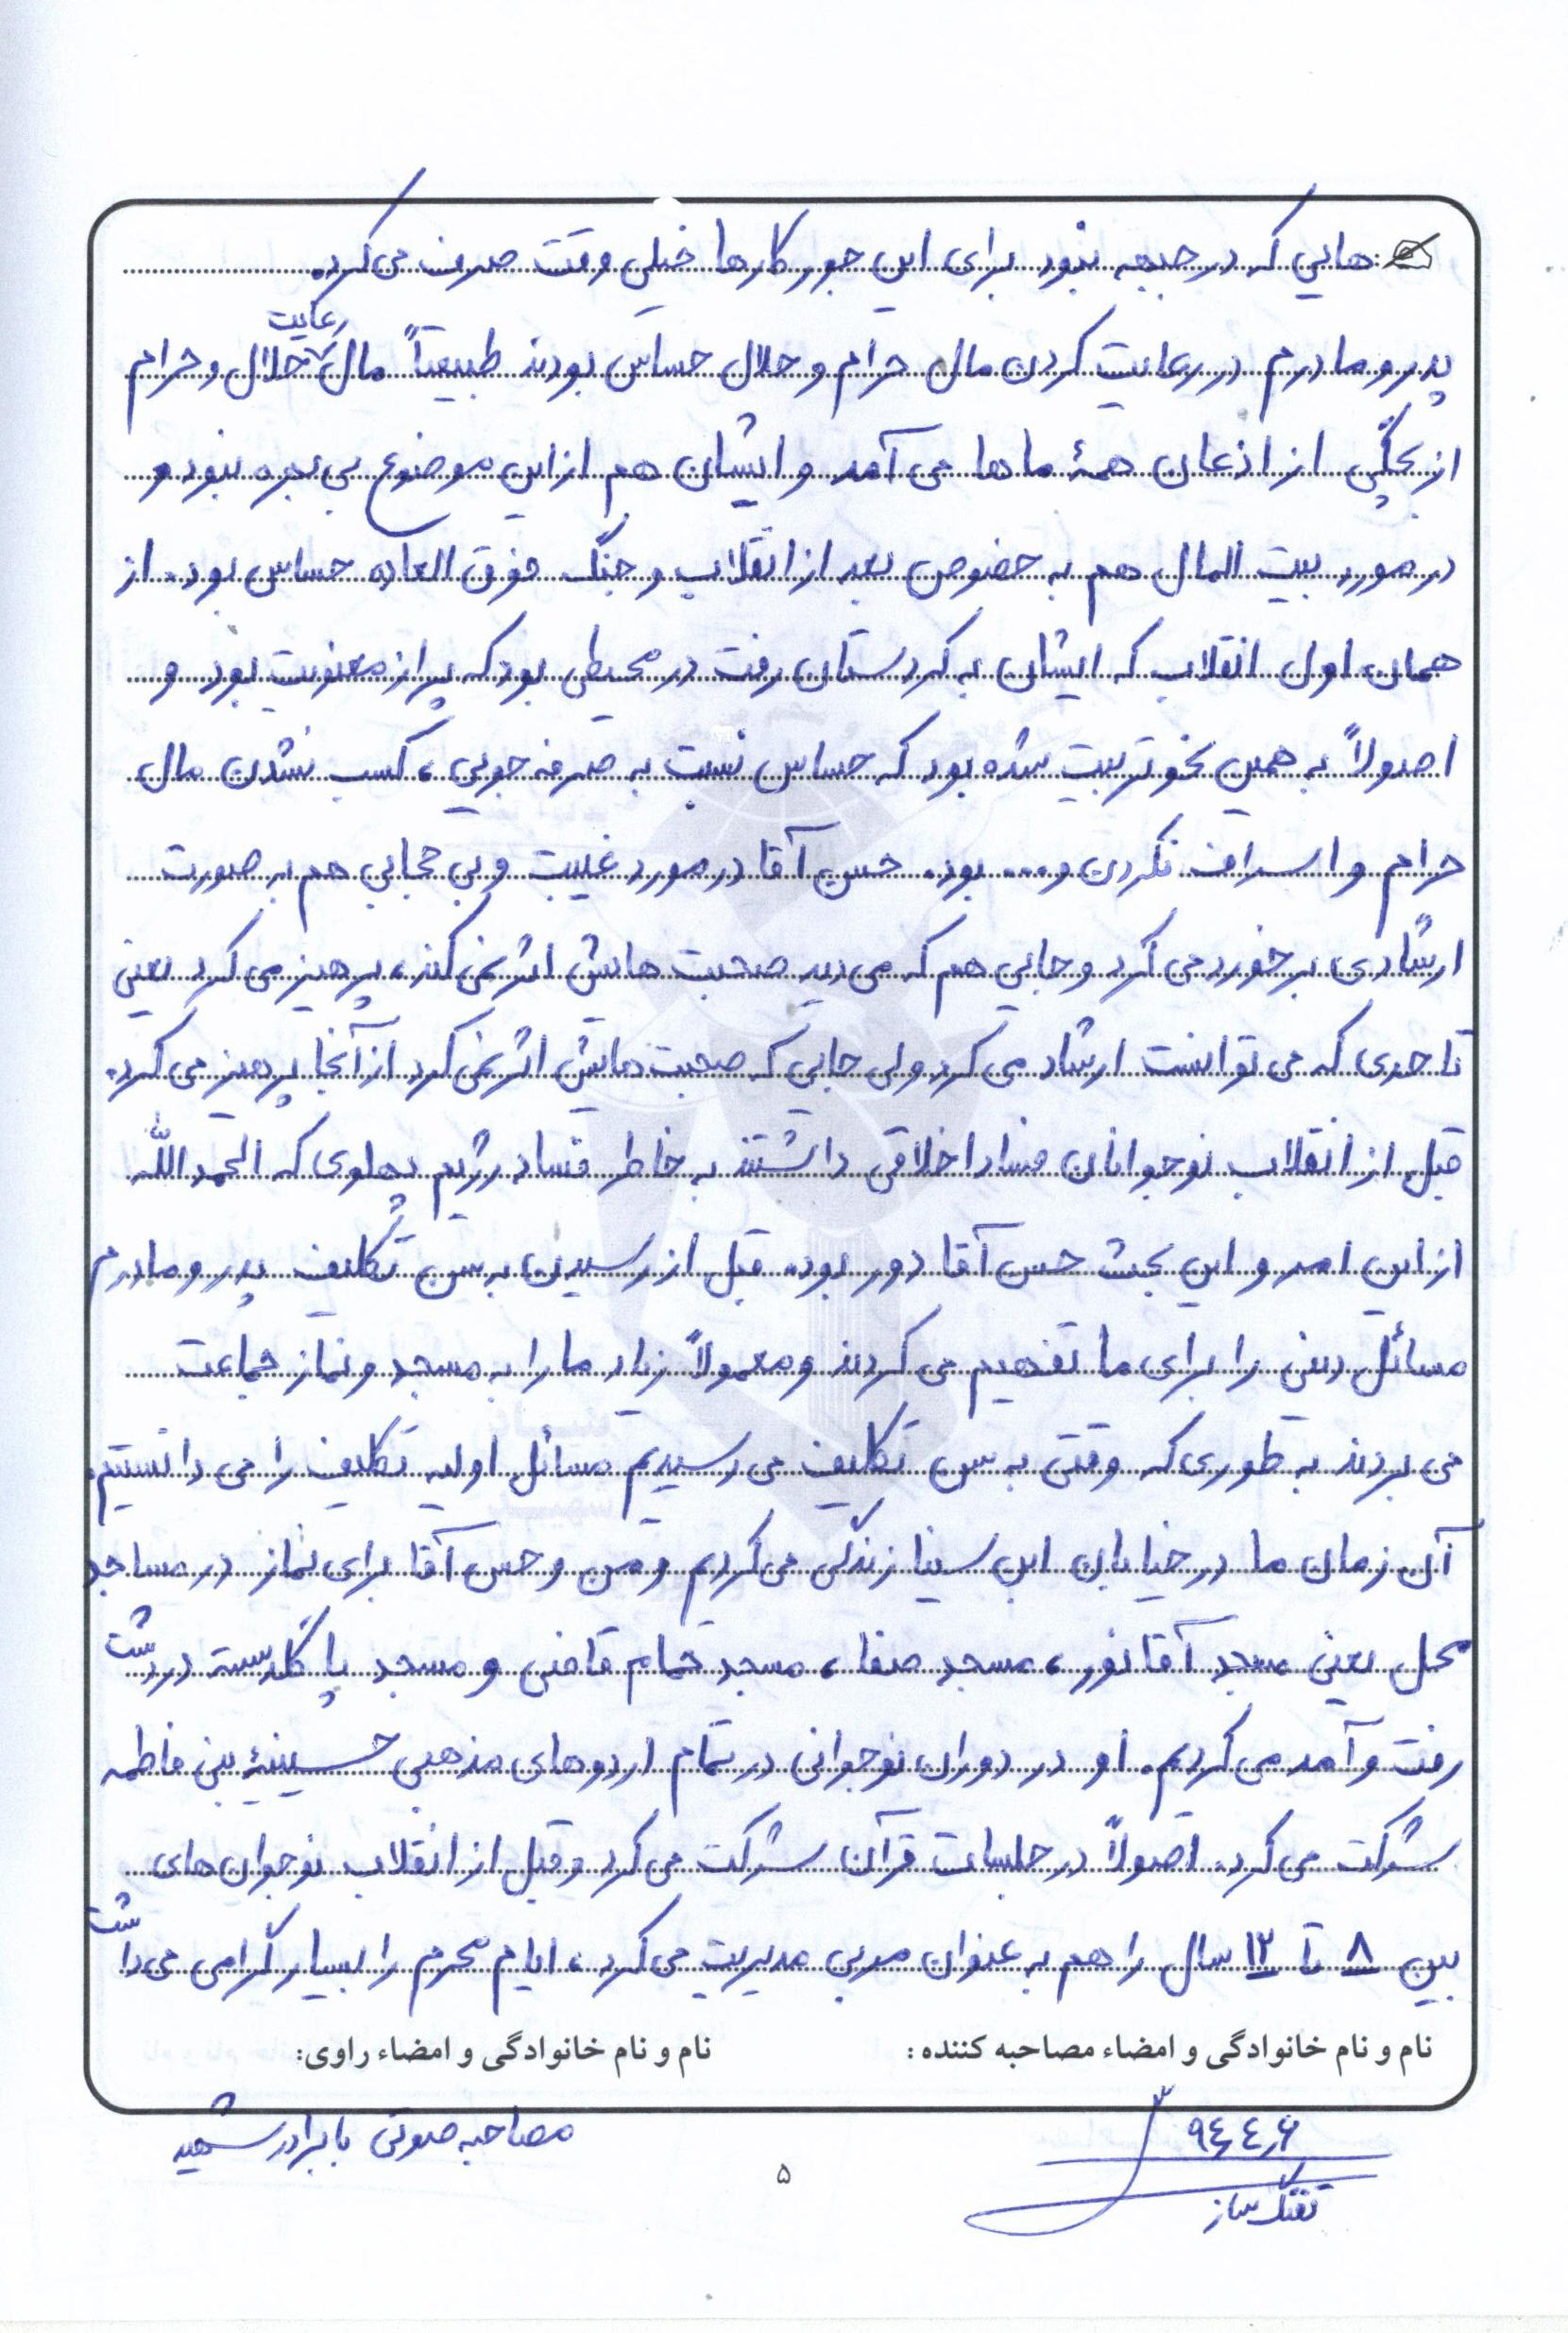 هایی که در جبهه نبود برای این جور کارها خیلی وقت صرف می کرد.
پدر و مادرم در رعایت کردن مال حرام و حلال حساس بودند طبیعتاً رعایت مال حلال و حرام
از بچگی از اذعان همۀ ماها می آمد و ایشان هم از این موضوع بی بهره نبود و
در مورد بیت المال هم به خصوص بعد از انقلاب و جنگ فوق العاده حساس بود. از
همان اول انقلاب که ایشان به کردستان رفت در محیطی بود که پر از معنویت بود و
اصولاً به همین نحو تربیت شده بود که حساس نسبت به صرفه جویی، کسب نشدن مال
حرام و اسراف نکردن و .... بود. حسن آقا در مورد غیبت و بی حجابی هم به صورت
ارشادی برخورد می کرد و جایی هم که می دید صحبت هایش اثر نمی کند، پرهیز می کرد یعنی
تا حدی که می توانست ارشاد می کرد ولی جایی که صحبت هایش اثر نمی کرد از آنجا پرهیز می کرد.
قبل از انقلاب نوجوانان فساد اخلاقی داشتند به خاطر فساد رژیم پهلوی که الحمدالله
از این امر و این بحث حسن آقا دور بود. قبل از رسیدن به سن تکلیف پدر و مادرم
مسائل دینی را برای ما تفهیم می کردند و معمولاً زیاد ما را به مسجد و نماز جماعت
می بردند به طوری که وقتی به سن تکلیف می رسیدیم مسائل اولیه تکلیف را می دانستیم.
آن زمان ما در خیابان ابن سینا زندگی می کردیم و من و حسن آقا برای نماز در مساجد
محل یعنی مسجد آقانور، مسجد صفا، مسجد حمام قاضی و مسجد پاگلدسته در دشت
رفت و آمد می کردیم. او در دوران نوجوانی در تمام اردوهای مذهبی حسینیۀ بنی فاطمه
شرکت می کرد. اصولاً در جلسات قرآن شرکت می کرد و قبل از انقلاب نوجوان های
بین ۸ تا ۱۲ سال را هم به عنوان مربی مدیریت می کرد، ایام محرم را بسیار گرامی می داشت
نام و نام خانوادگی و امضاء مصاحبه کننده :
نام و نام خانوادگی و امضاء راوی:
۹۴٫۴٫۶
تفنگ ساز
مصاحبه صوتی با برادر شهید
۵